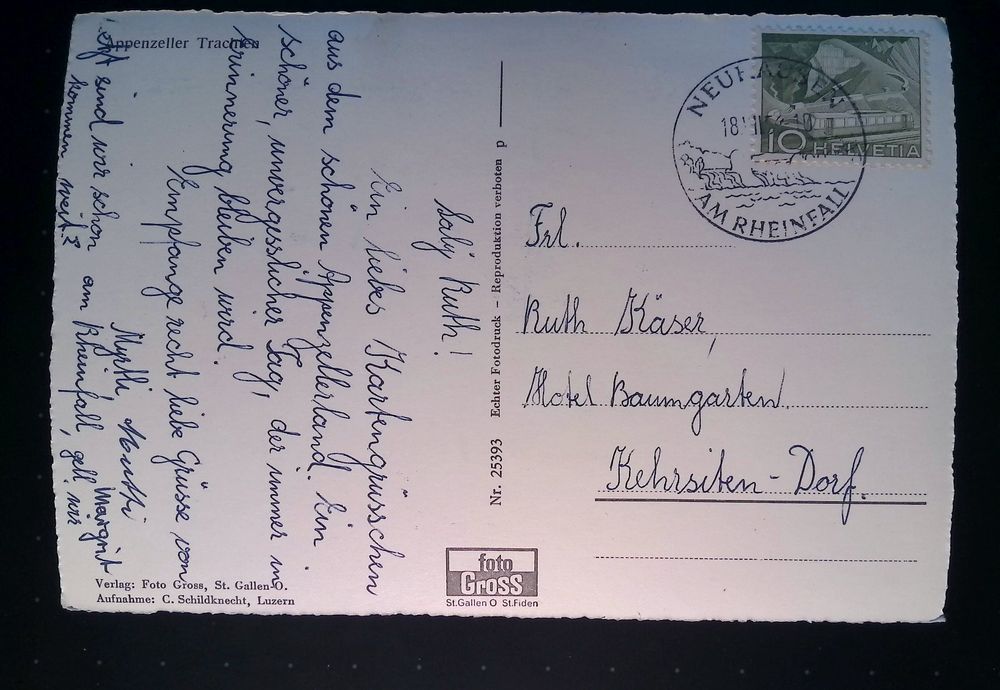 Appenzeller Trachten
Ruth!
Ein liebes Kartengrüsschen
aus dem schönen Appenzellerland. Ein
schöner, unvergesslicher Tag, der immer in
Erinnerung bleiben wird.
Empfange recht liebe Grüsse von
Myrthi Mutti
Margrit
Jetzt sind wir schon am Rheinfall, gell wir
kommen weit?
Verlag: Foto Gross, St. Gallen-O.
Aufnahme: C. Schildknecht, Luzern
Nr. 25393 Echter Fotodruck – Reproduktion verboten p
foto
Gross
St.Gallen O St.Fiden
NEUHAUSEN
AM RHEINFALL
10 HELVETIA
Frl.
Ruth Käser,
Hotel Baumgarten
Kehrsiten-Dorf.